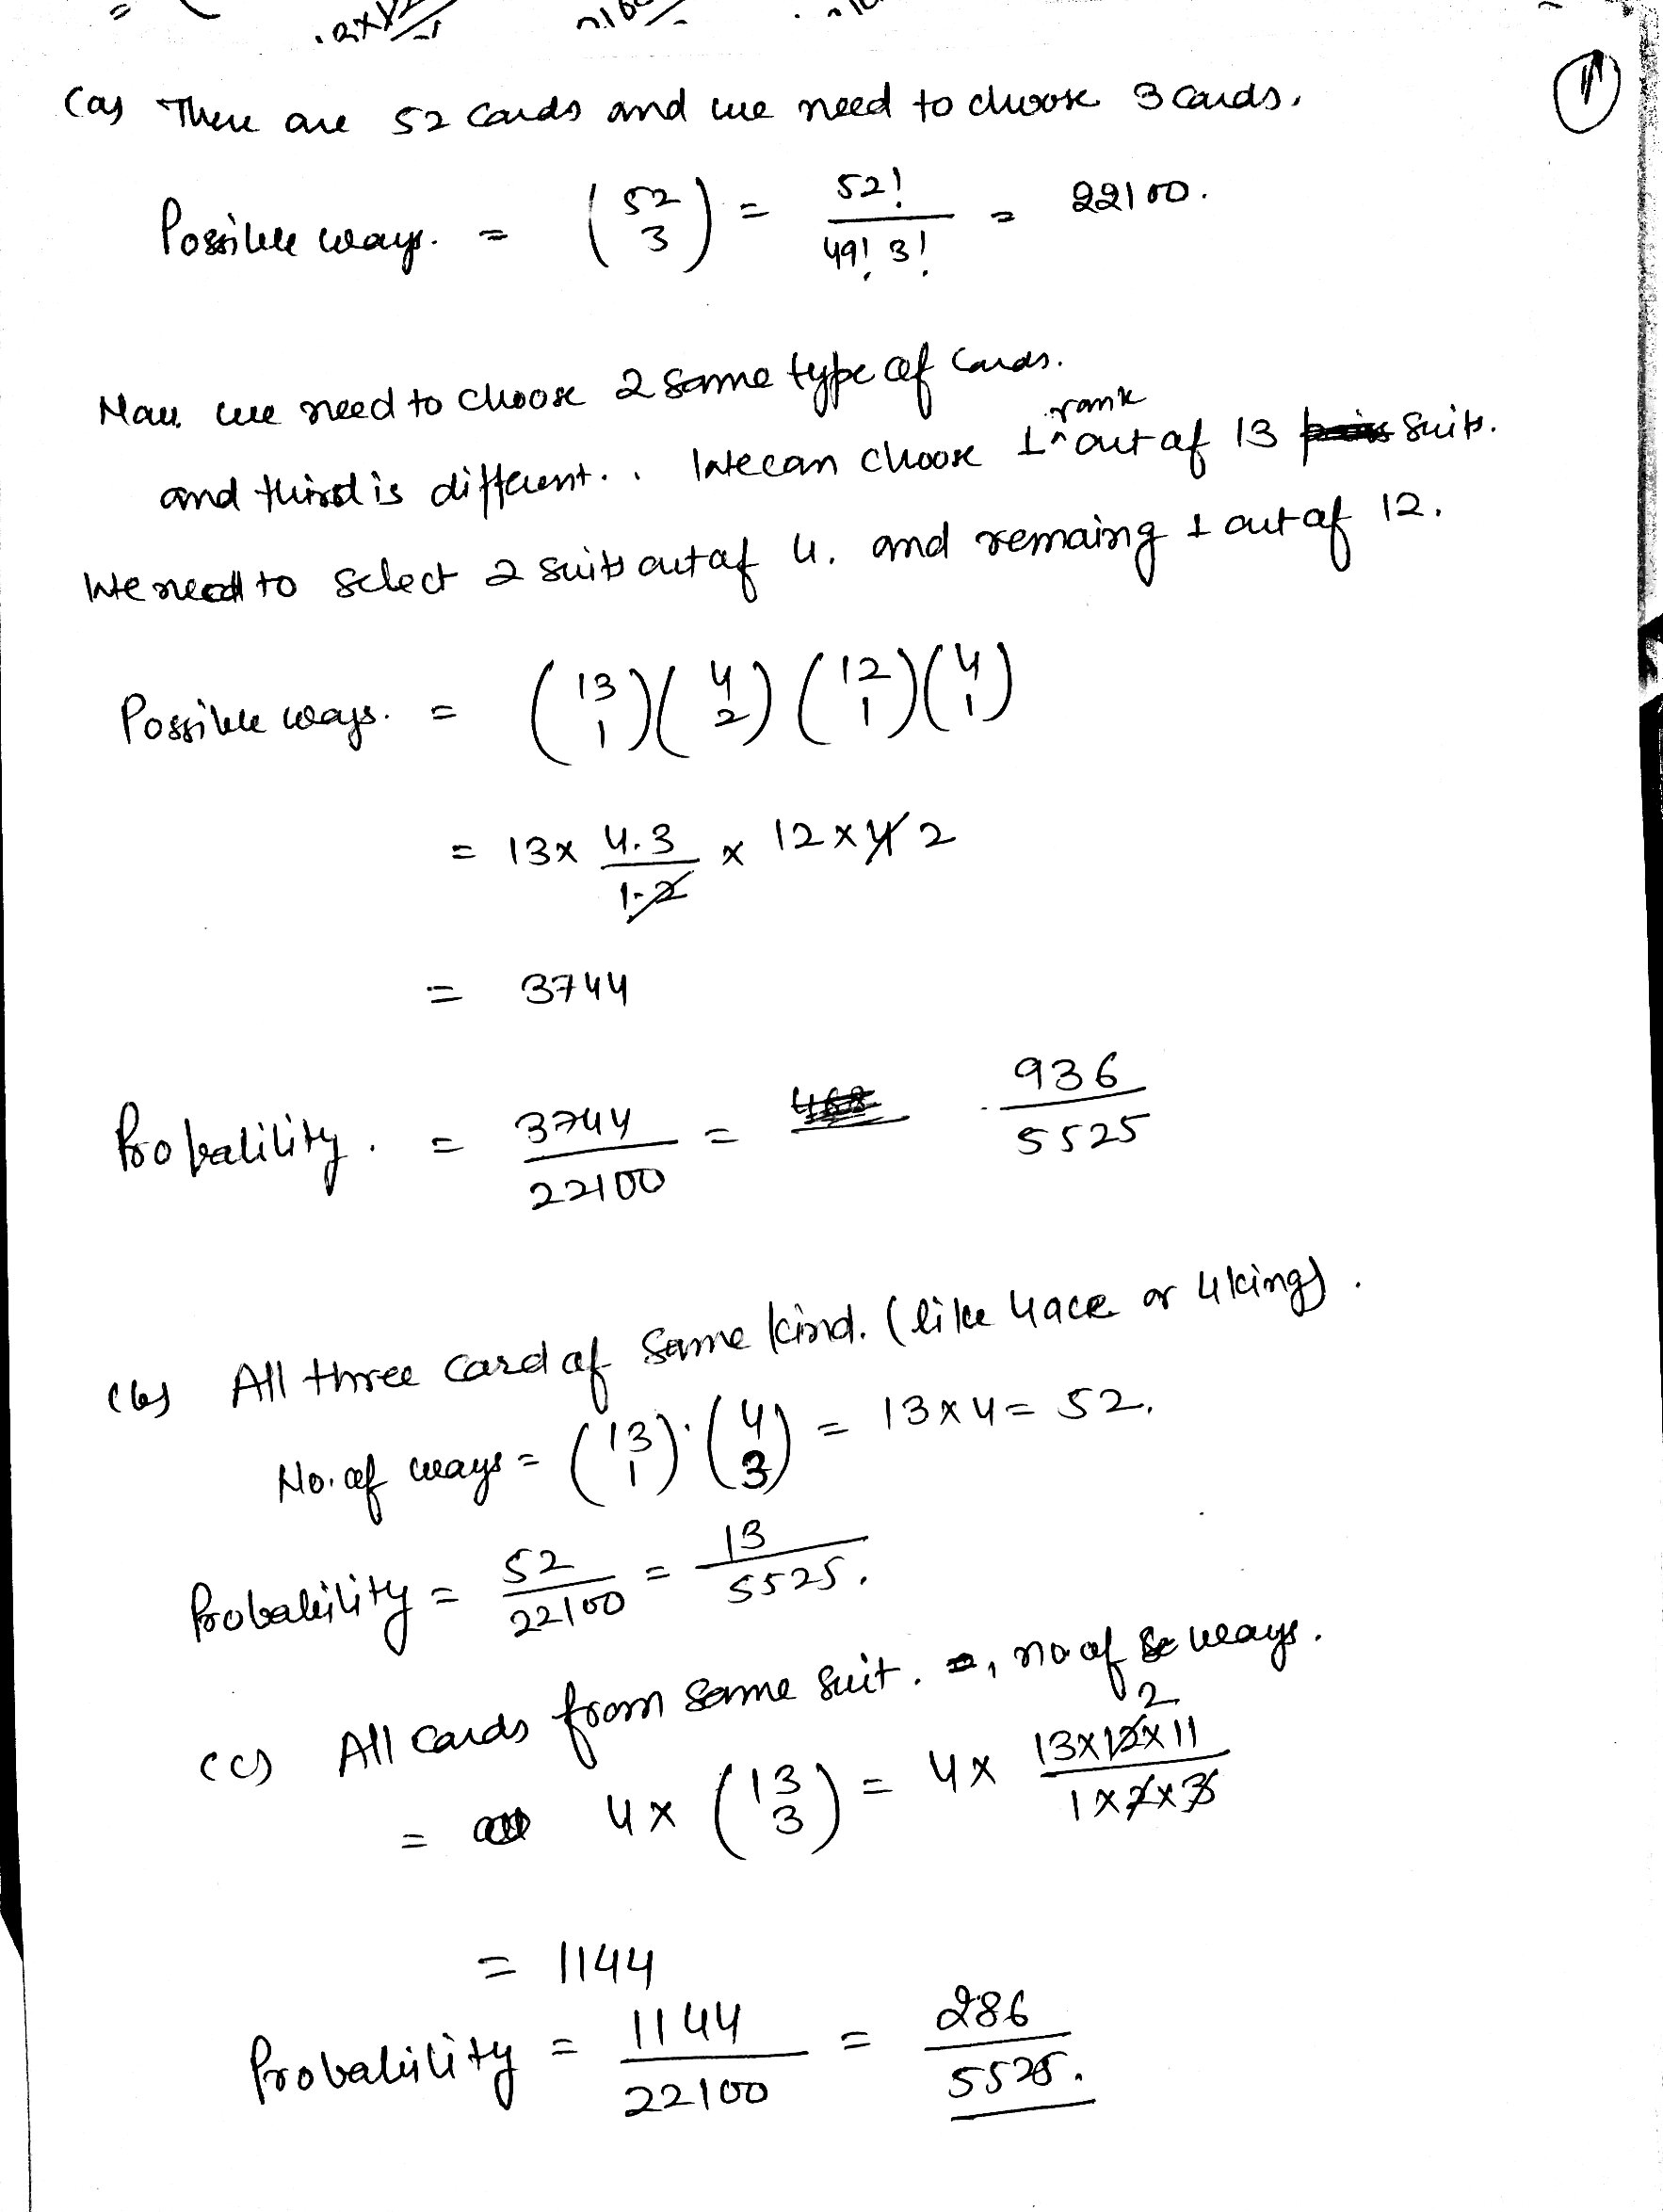 (a) There are 52 Cards and we need to choose 3 cards.
Possible ways. = (52 3) = 52! / 49! 3! = 22100.
Now we need to choose 2 same type of cards.
and third is different. . We can choose 1 rank out of 13 suits.
We need to select 2 suits out of 4. and remaing 1 out of 12.
Possible ways. = (13 1)(4 2)(12 1)(4 1)
= 13 x 4.3 / 1.2 x 12 x 4 2
= 3744
Probability. = 3744 / 22100 = 936 / 5525
(b) All three card of same kind. (like 4 ace or 4 kings).
No. of ways = (13 1).(4 3) = 13 x 4 = 52.
Probability = 52 / 22100 = 13 / 5525.
(c) All cards from same suit. , no of ways.
= 4 x (13 3) = 4 x 13 x 12 x 11 / 1 x 2 x 3 2
= 1144
Probability = 1144 / 22100 = 286 / 5525.